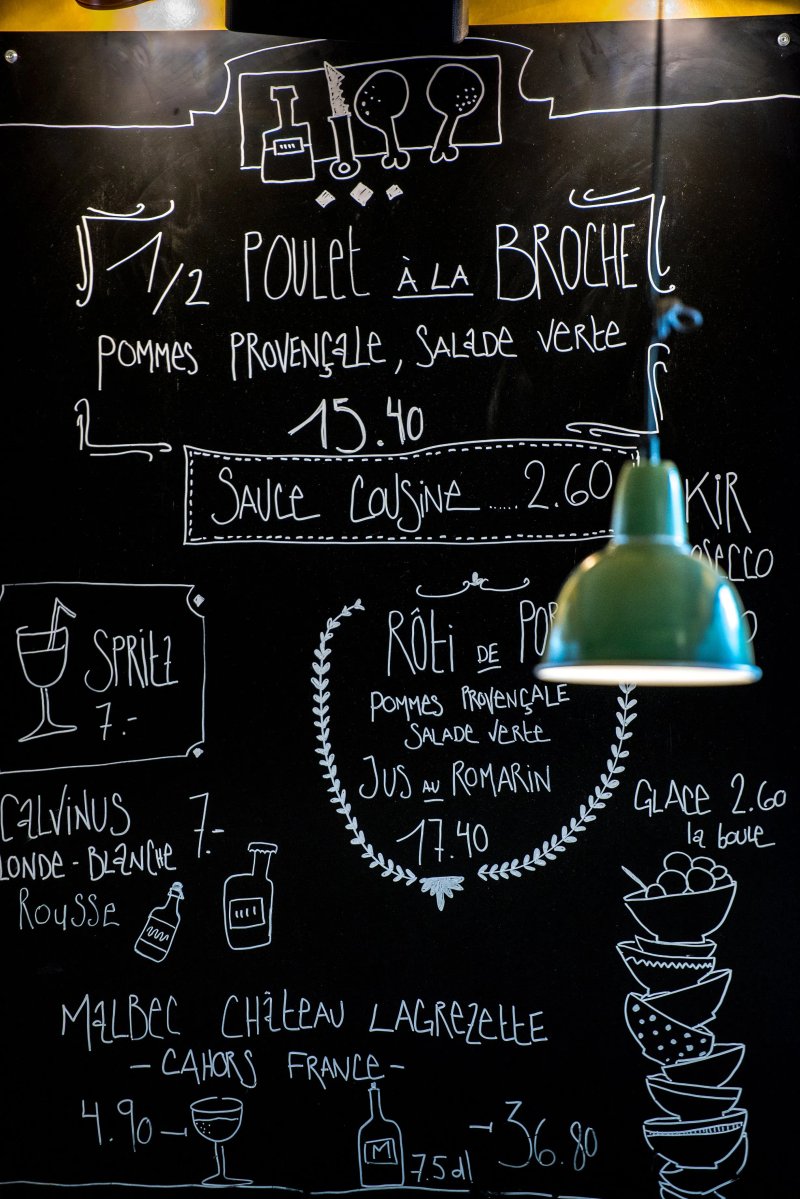 1/2 POULET À LA BROCHE
POMMES PROVENÇALE, SALADE VERTE
15.40
SAUCE COUSINE ..... 2.60
KIR
RÔTI DE
POMMES PROVENÇALE
SALADE VERTE
JUS AU ROMARIN
17.40
SPRITZ
7.-
CALVINUS 7.-
BLANCHE
ROUSSE
GLACE 2.60
la boule
MALBEC CHÂTEAU LAGREZETTE
- CAHORS FRANCE -
4.90 -
M
7.5 dl
- 36.80